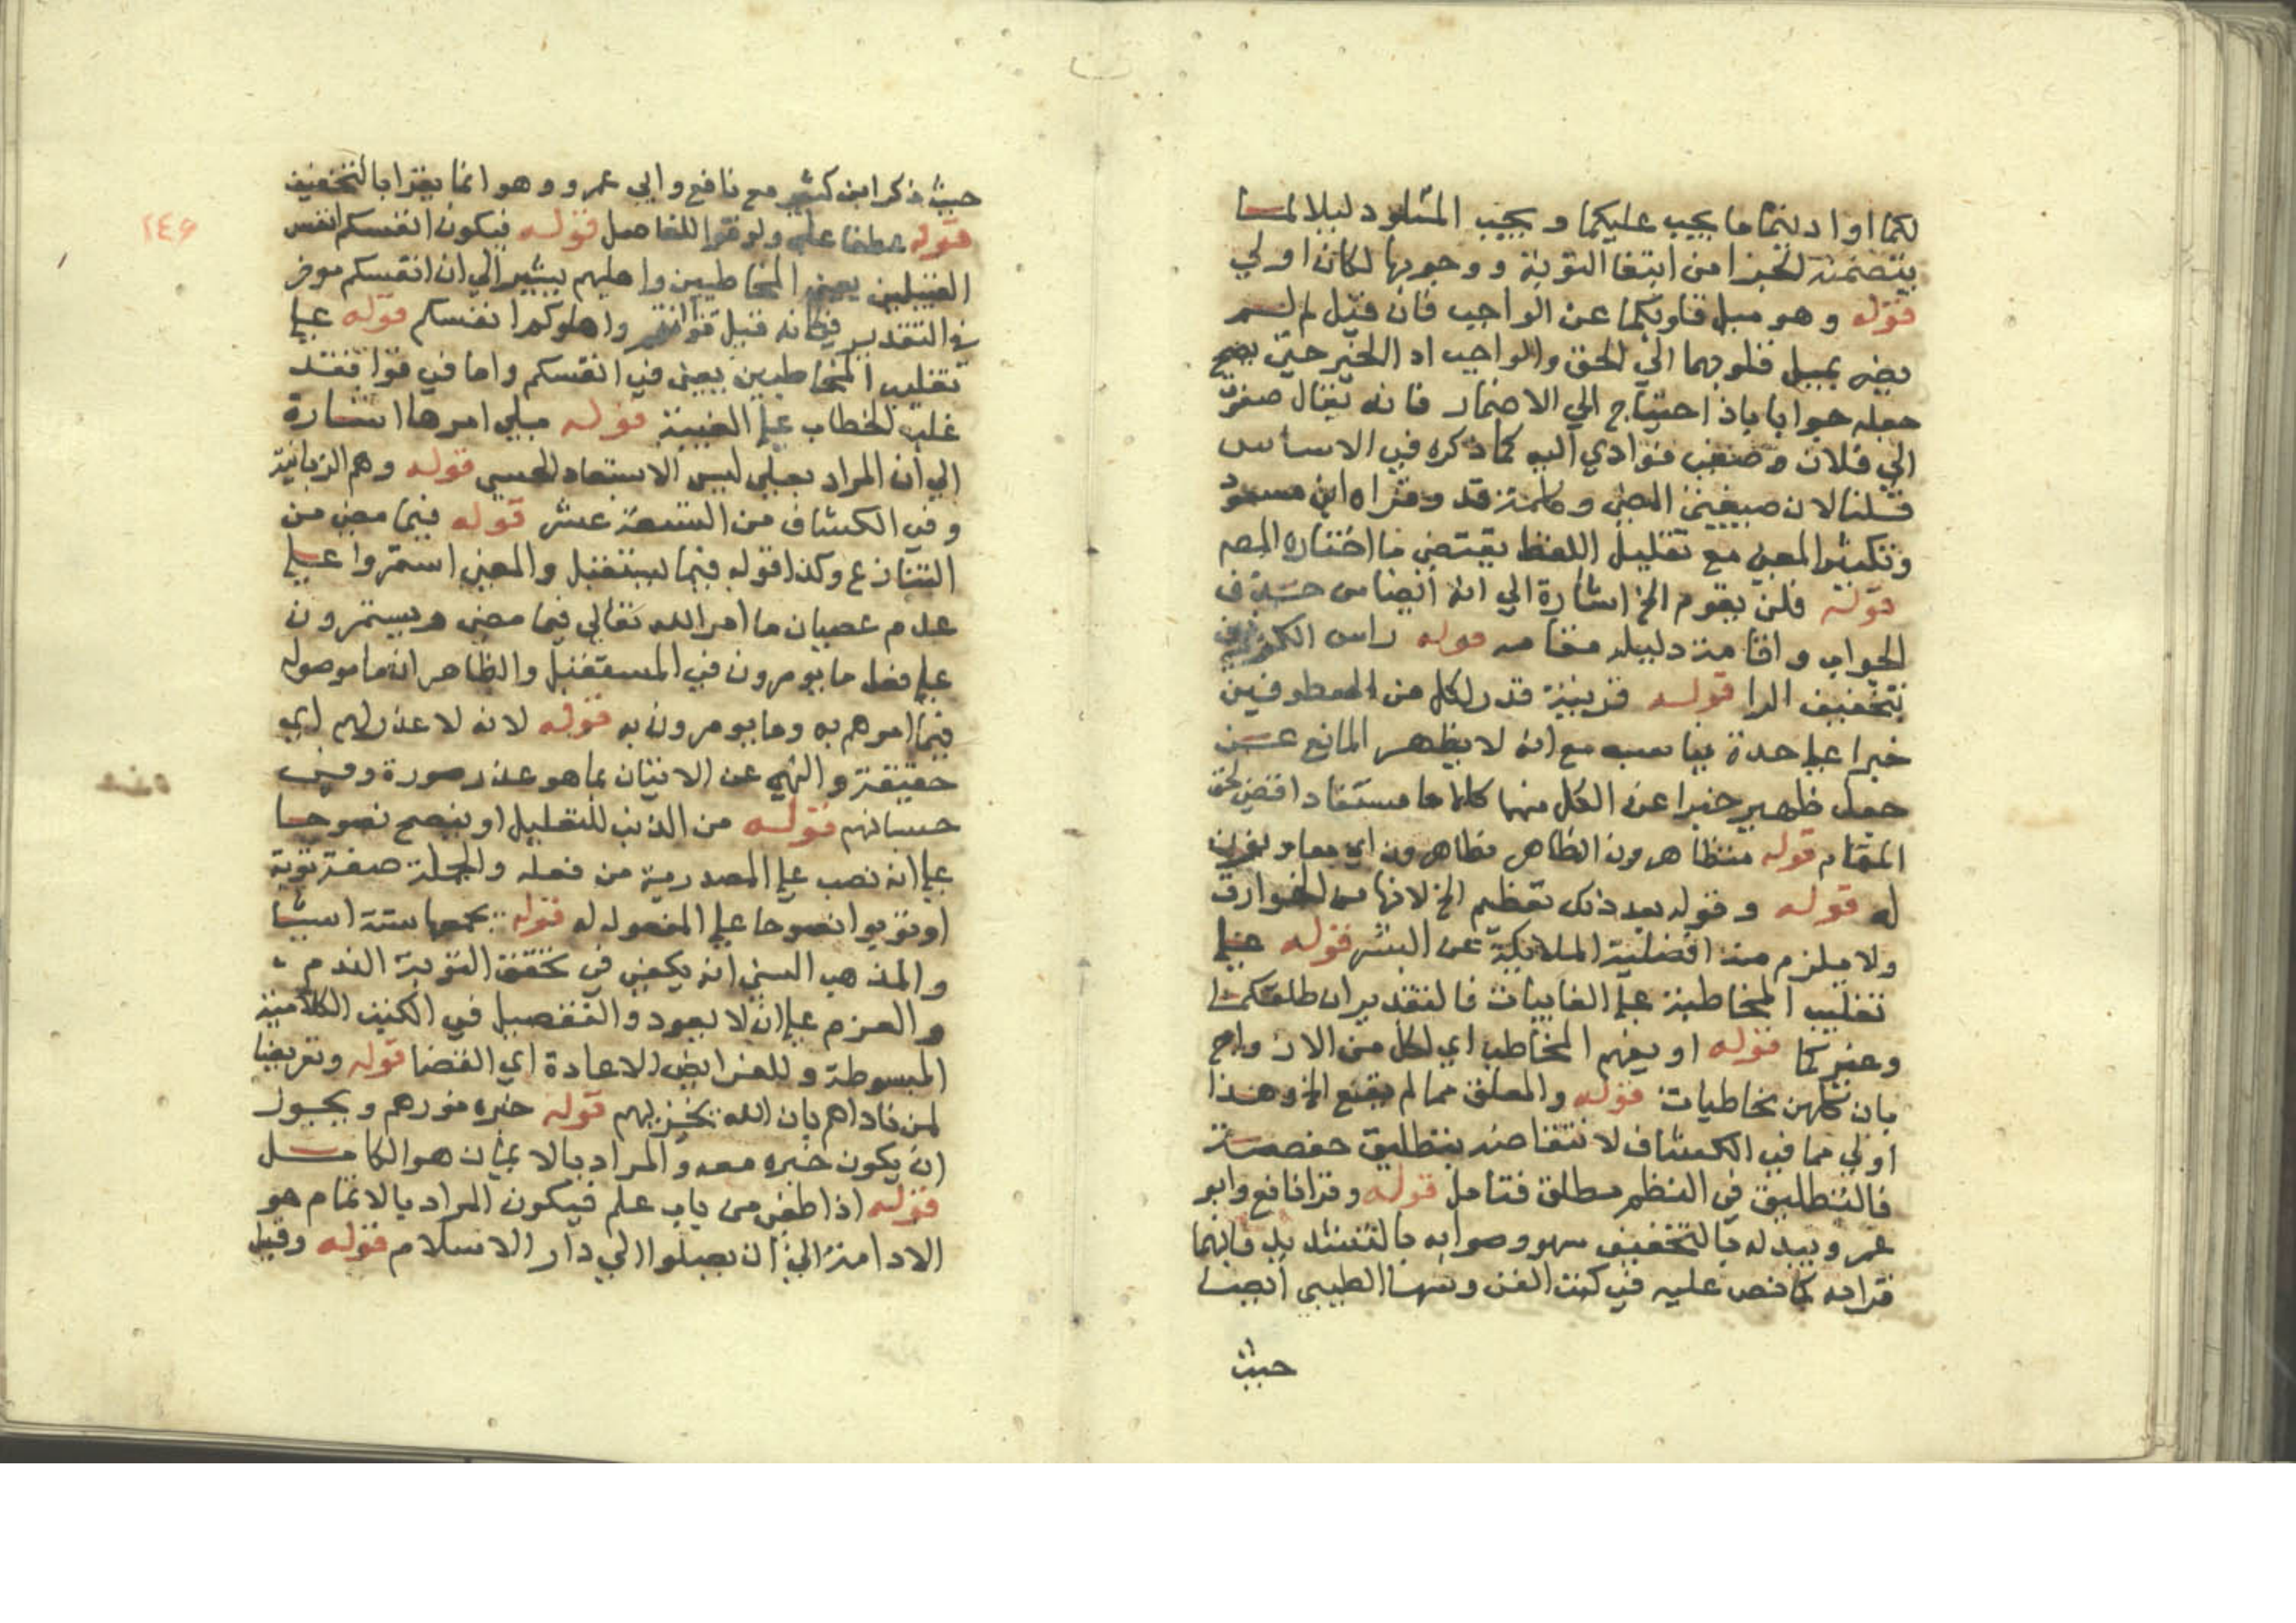 لكما او ادنتما ما يجب عليكما و يجب المتلود ليلا لما
يتضمنه الخبر من ابتغا التوبة ووجوبها لكان اولي
قوله وهو ميل قلوبكما عن الواجب فان قيل لم لم
يضه بميل قلوبهما الي الحق والواجب اد الخير حتى يصح
جعله جوابا باذا احتياج الي الاضمار فانه يقال صغت
الي فلان وصغى فوادي اليه كما ذكره في الاساس
قلنا لان صيغتي المضي وكلمة قد وقراه ابن مسعود
وتكثير المعنى مع تقليل اللفظ يقتضي ما اختاره المص
قوله فلن يقوم الخ اشارة الي انه ايضا من حسن في
الجواب واقامة دليله مقامه قوله راس الكروبيين
بتخفيف الرا قوله قرينة قدر لكل من المعطوفين
خبرا علي حدة يناسبه مع انه لا يظهر المانع عن
جعل ظهير خبرا عن الكل منها كلاما مستفادا قضى لحق
المقام قوله متظاهرون الظاهر مظاهرون اي معاونون
له قوله وقوله بعد ذلك تعظيم الخ لانها من الخوارق
ولا يلزم منه افضلية الملايكة عن البشر قوله علي
تغليب المخاطبة علي الغايبات فالتقدير ان طلقكما
وغيركما قوله او يعم المخاطب اي لكل من الازواج
بان كلهن مخاطبات قوله والمعلق مما لم يقع الخ وهذا
اولي مما في الكشاف لانتقاضه بتطليق حفصة
فالتطليق في النظم مطلق فتامل قوله وقرا نافع وابو
عمرو يبدله بالتخفيف سهو وصوابه بالتشديد فانهما
قراه كما نص عليه في كتب الفن وسها الطيبي ايضا
حيث
٢٤٦
حيث ذكر ابن كثير مع نافع وابي عمرو وهو انما يقرا بالتخفيف
قوله عطفا علي ولو قوا للفاصل قوله فيكون انفسكم انفس
القبيلين يعني المخاطبين واهليهم يشير الي ان انفسكم موخر
في التقدير فكانه قيل قوا انتم واهلوكم انفسكم قوله علي
تغليب المخاطبين يعني في انفسكم واما في قوا فقد
غلب الخطاب علي الغيبة قوله يلي امرها اشارة
الي ان المراد بعلي ليس الاستعاد الحسي قوله وهم الزبانية
وفي الكشاف من التسعة عشر قوله فيما مضى من
التنازع وكذا قوله فيما يستقبل والمعنى استمروا علي
عدم عصيان ما امر الله تعالي فيما مضى ويستمرون
علي فعل ما يومرون في المستقبل والظاهر ان ما موصوله
فيما امرهم به وما يومرون به قوله لانه لا عذر لهم اي
حقيقة والنهي عن الاتيان بما هو عذر صورة وفي
حسبانهم قوله من الذنب للتعليل او ينصح نصوحا
علي انه نصب علي المصدرية من فعله والجملة صفة توبة
او توبوا نصوحا علي المفعول له قوله يجمعها ستة اشيا
والمذهب السني انه يكفي في تحقق التوبة الندم
والعزم علي ان لا يعود والتفصيل في الكتب الكلامية
المبسوطة وللفرايض الاعادة اي القضا قوله وتعريضا
لمن ناداهم بان الله يخزيهم قوله خبره نورهم ويجوز
ان يكون خبره معه والمراد بالايمان هو الكامل
قوله اذا طفى من باب علم فيكون المراد بالاتمام هو
الادامة الي ان يصلوا الي دار السلام قوله وقيل